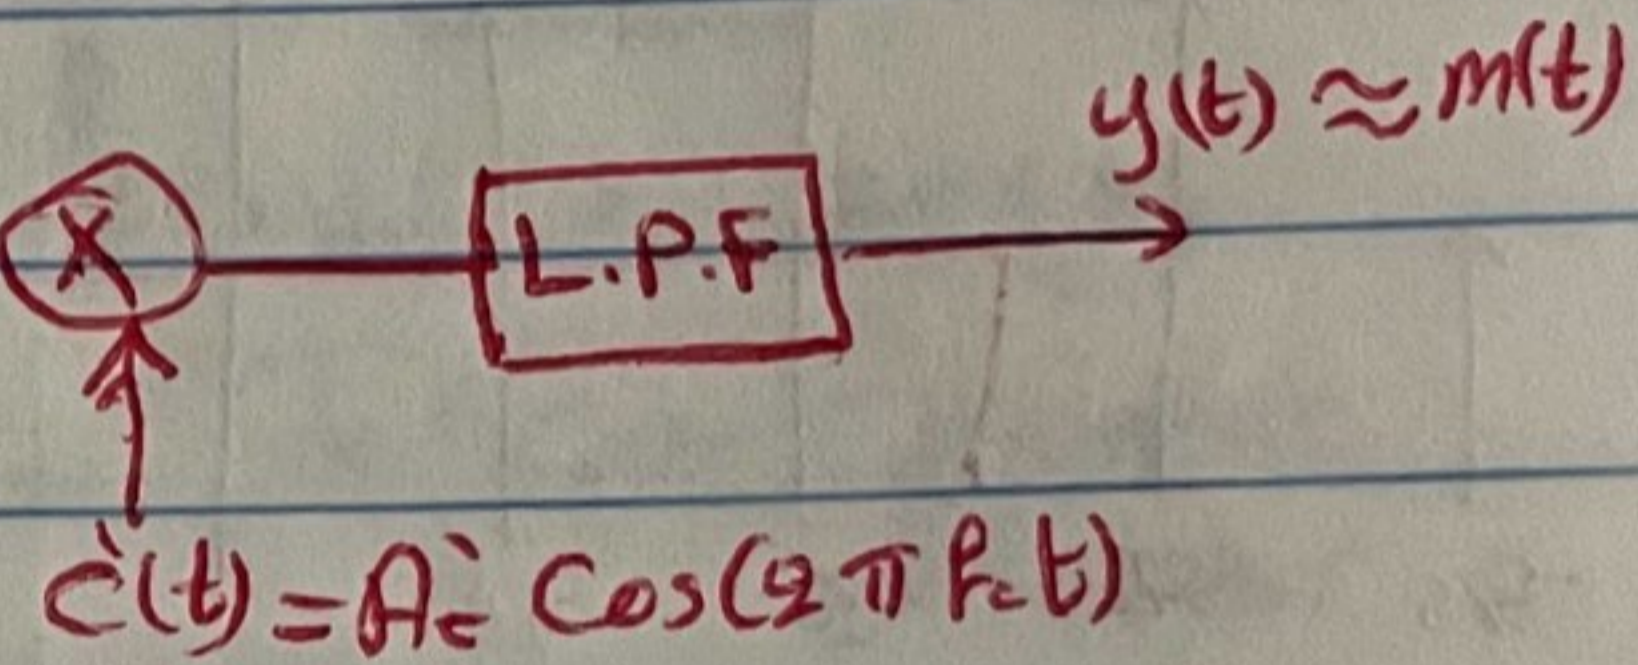 y(t) ≈ m(t)
X
L.P.F
c̀(t) = Àc Cos(2πfct)